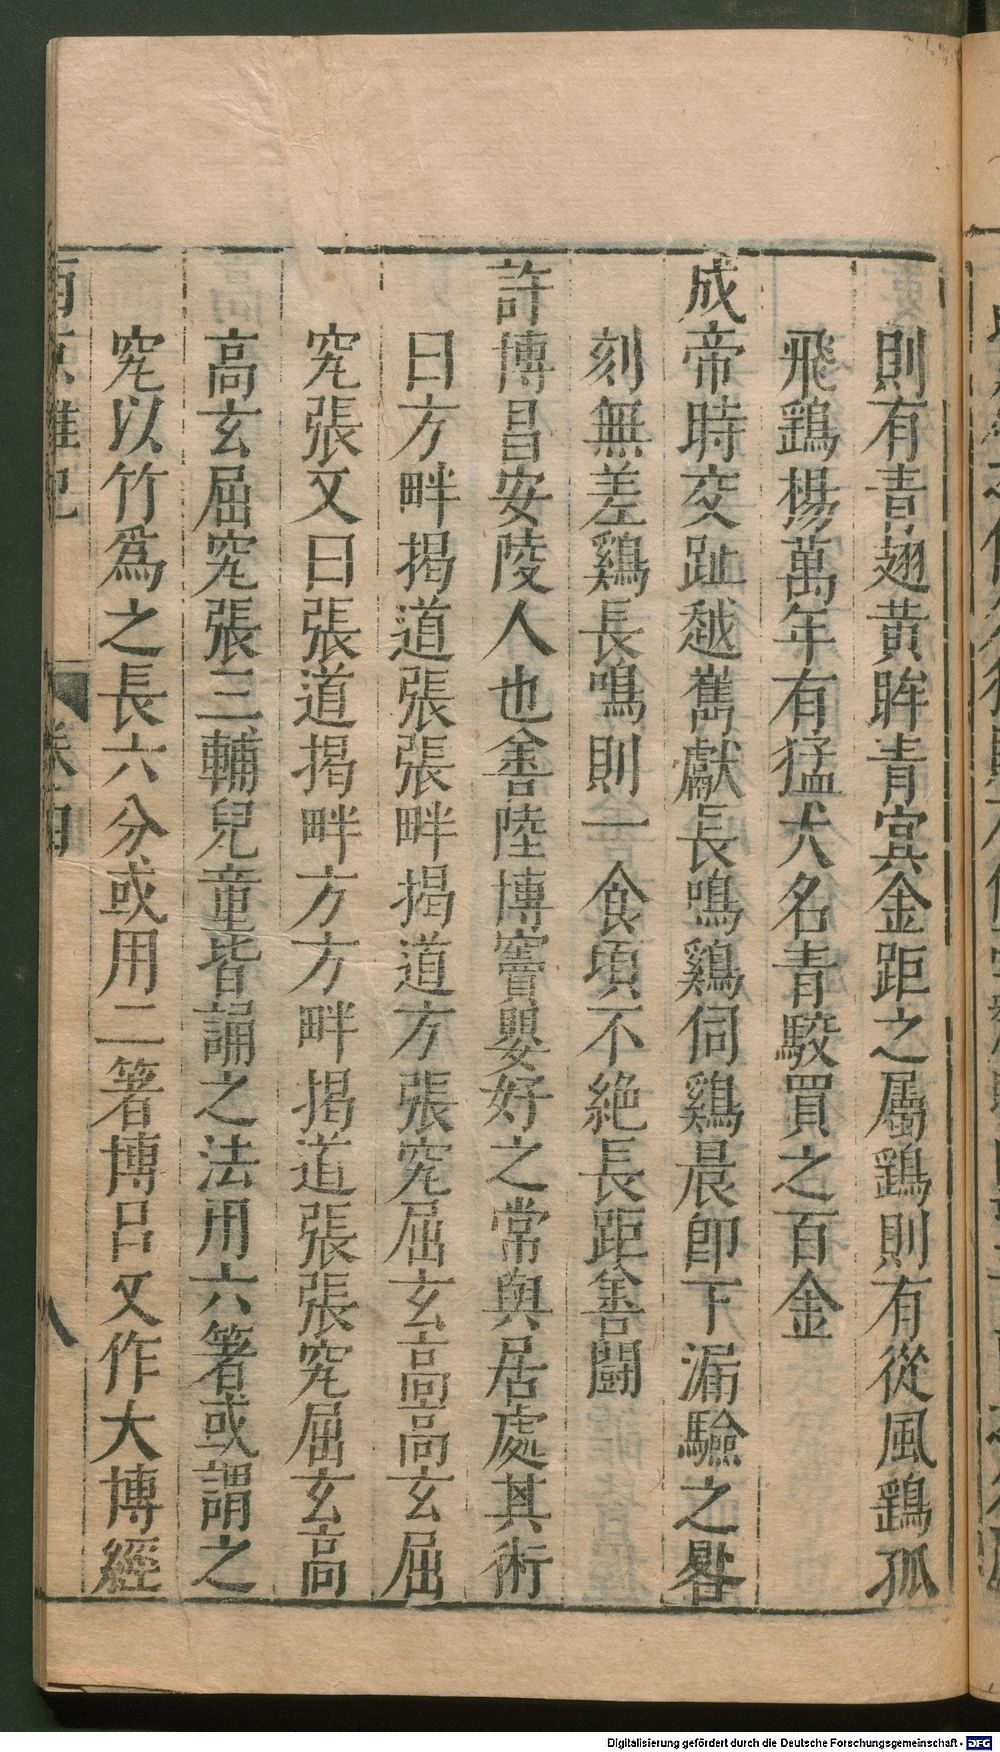 則有青翅黃眸青宾金距之屬鷄則有從風鷄孤
飛鷄楊萬年有猛犬名青駮買之百金
成帝時交趾越巂獻長鳴鷄伺鷄晨卽下漏驗之晷
刻無差鷄長鳴則一食頃不絶長距善鬪
許博昌安陵人也善陸博竇嬰好之常與居處其術
曰方畔揭道張張畔揭道方張究屈玄高高玄屈
究張又曰張道揭畔方方畔揭道張張究屈玄高
高玄屈究張三輔兒童皆誦之法用六箸或謂之
究以竹爲之長六分或用二箸博昌又作大博經
西京雜記
卷四
八
Digitalisierung gefördert durch die Deutsche Forschungsgemeinschaft - DFG